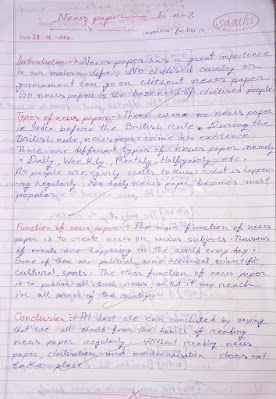 News paper E. no-3
saathi
Date 28
Introduction :- News paper has a great importence
in our modern life. No civilised country or
government can go on without news paper
So news paper is the basic need of civilised people
Types of news paper :- There were no news paper
in India before the British rule. During the
British rule, news paper come into existence.
There are different types of news paper namely
Daily, Weekly, Monthly, Halfyearly etc.
As people are eager to know what is happen-
ing regularly. So daily news paper becomes most
popular.
Function of news paper :- The main function of news
paper is to create news on various subjects. Thousans
of events are happening in the world every day.
Some of them are political, some economical scientific
cultural, sports. The other function of news paper
is to publish all such news so that it may reach
in all corner of the country.
Conclusion :- At last one can concluted by saying
that we all should form the habits of reading
news paper regularly. Without reading news
paper, civilisation and modernisation does not
take place